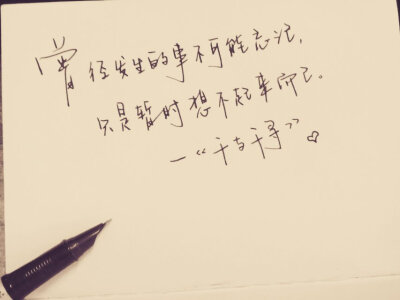 曾经发生的事不可能忘记,
只是暂时想不起来而已。
—“千与千寻”♡